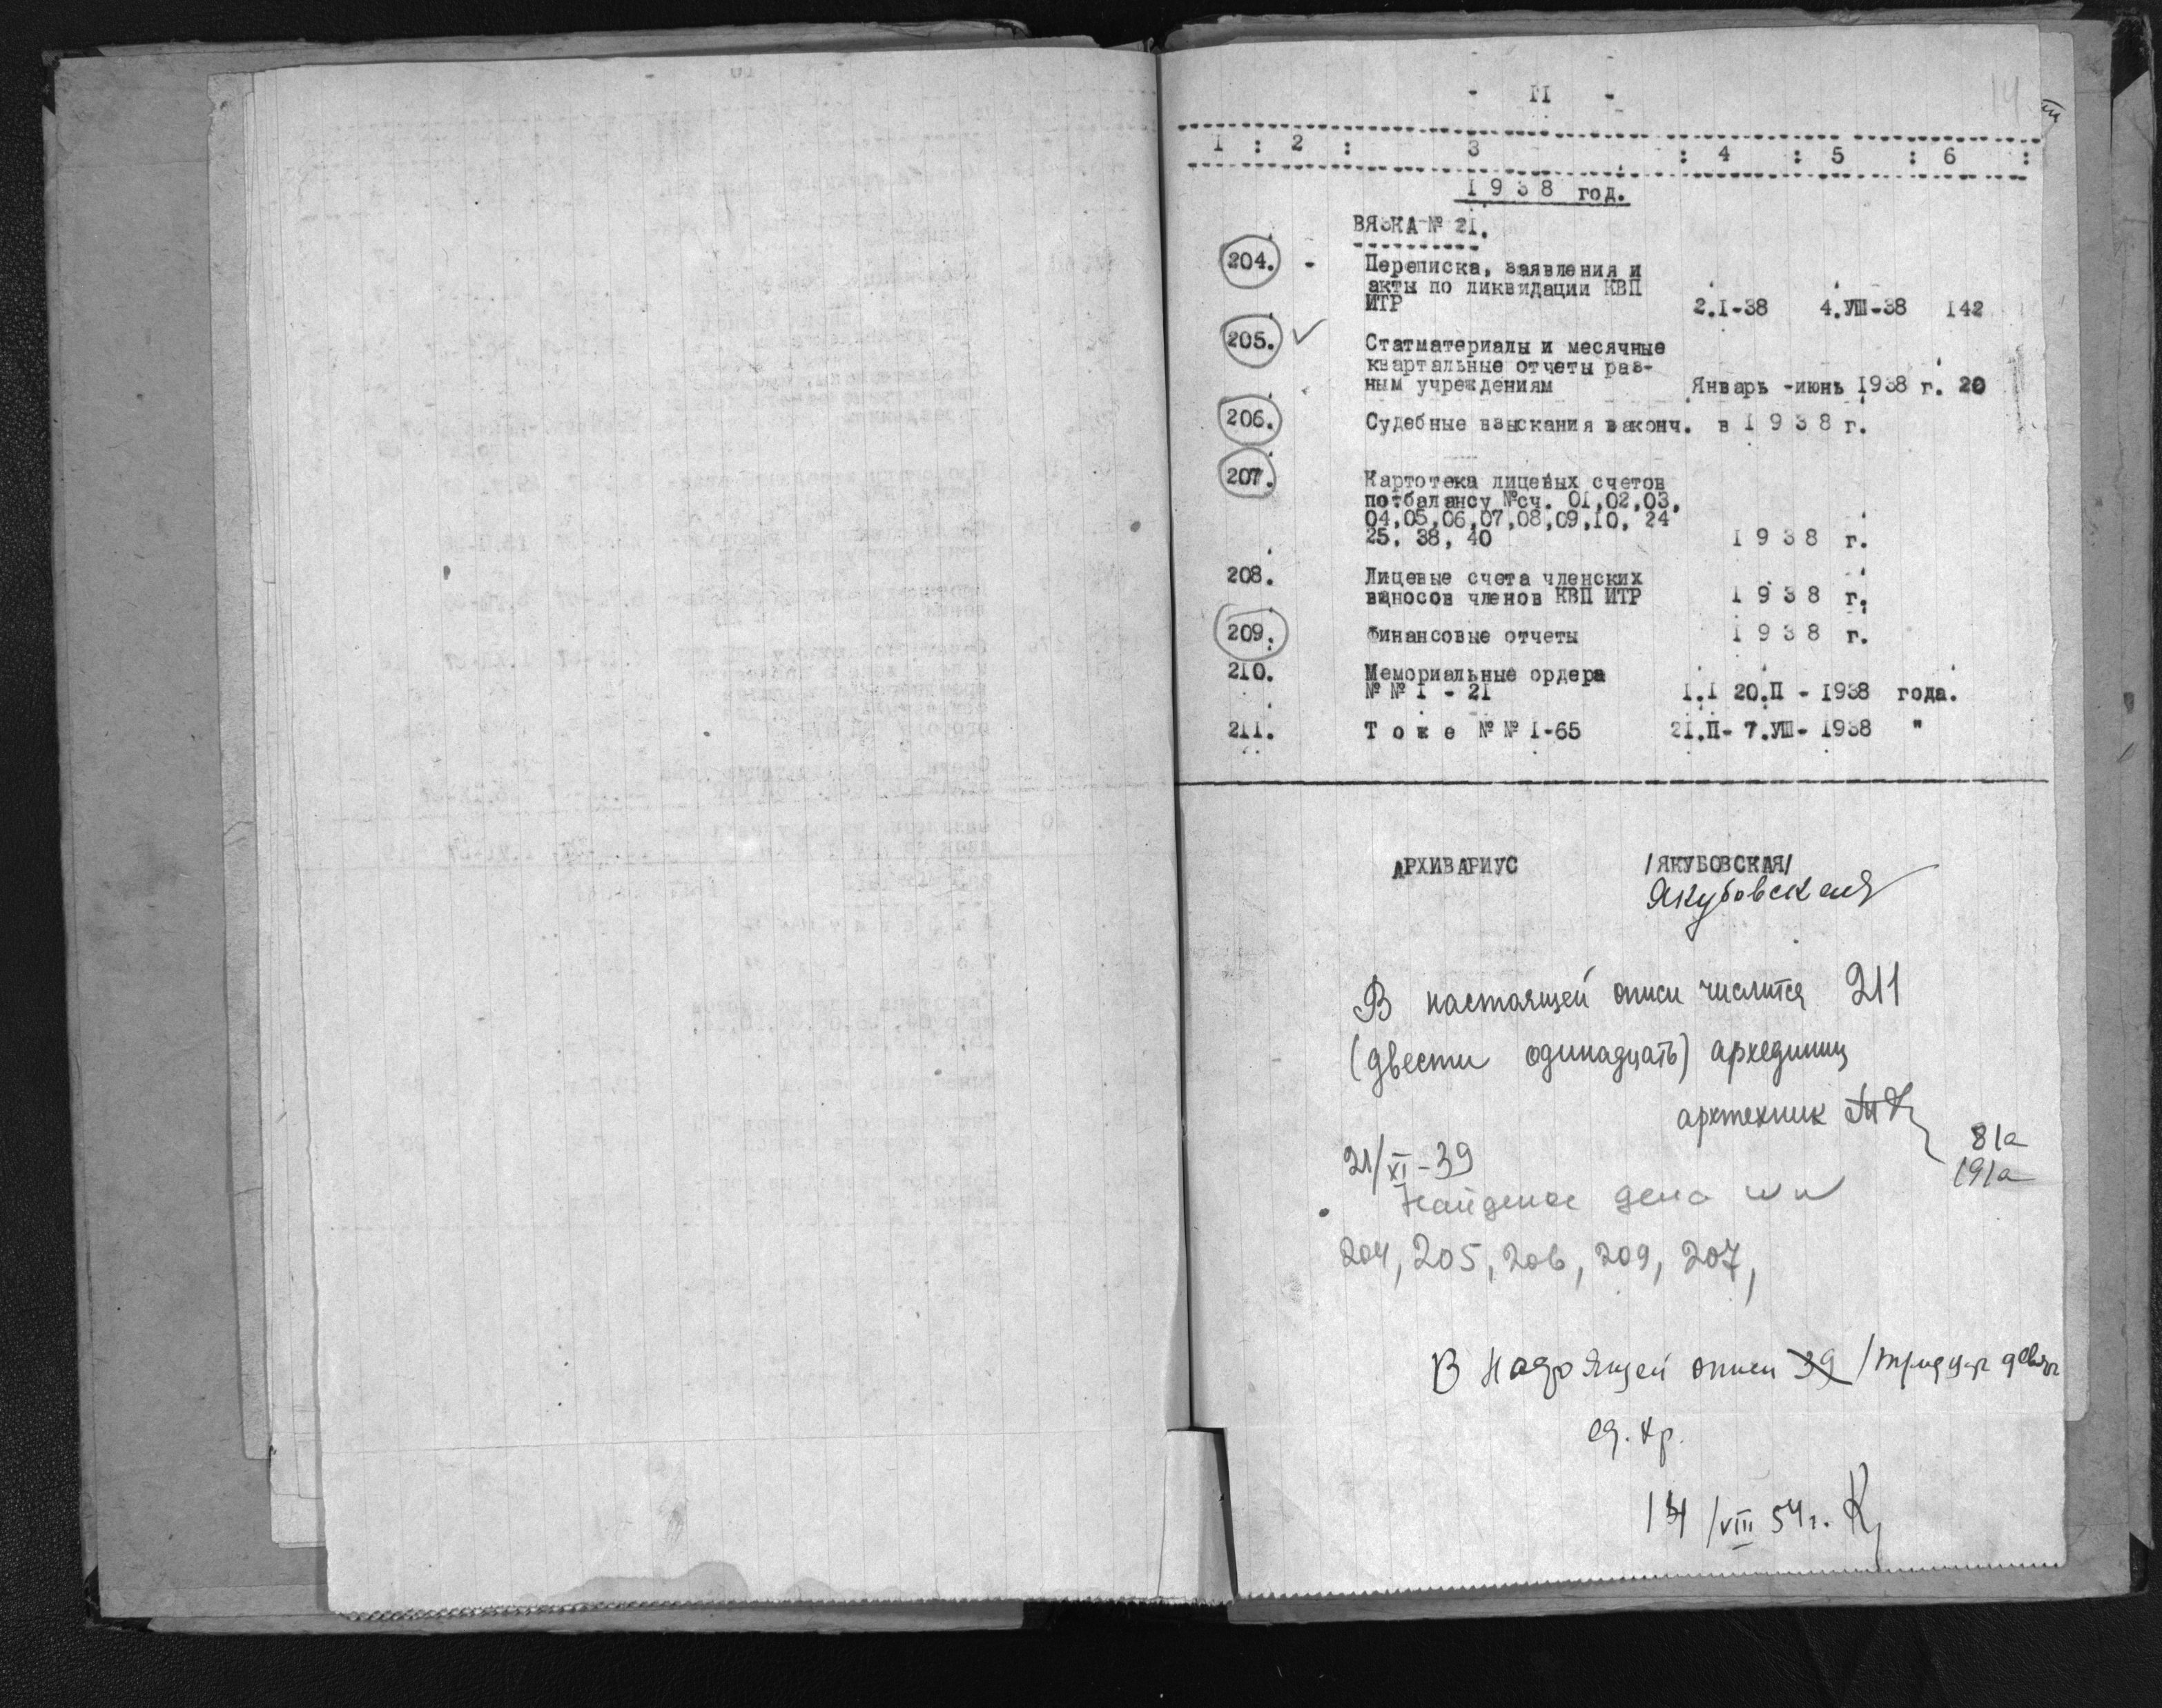 - II -
14
1 : 2 : 3 : 4 : 5 : 6 :
1 9 3 8 год.
ВЯЗКА № 21.
204. - Переписка, заявления и
акты по ликвидации КВП
ИТР 2.I-38 4.УШ-38 142
205. ✓ Статматериалы и месячные
квартальные отчеты раз-
ным учреждениям Январь -июнь 1938 г. 20
206. Судебные взыскания законч. в 1 9 3 8 г.
207. Картотека лицевых счетов
по балансу №сч. 01,02,03,
04,05,06,07,08,09,10, 24
25, 38, 40 1 9 3 8 г.
208. Лицевые счета членских
взносов членов КВП ИТР 1 9 3 8 г.
209. Финансовые отчеты 1 9 3 8 г.
210. Мемориальные ордера
№ № 1 - 21 1.I 20.П - 1938 года.
211. Т о ж е № № 1-65 21.П- 7.УШ- 1938 "
АРХИВАРИУС /ЯКУБОВСКАЯ/
Якубовская
В настоящей описи числится 211
(двести одинадцать) архединиц
архтехник
81а
191а
21/XI-39
Найдено дела
204, 205, 206, 209, 207,
В настоящей описи 39 /тридцать девять
ед. хр.
14/VIII 54 г.